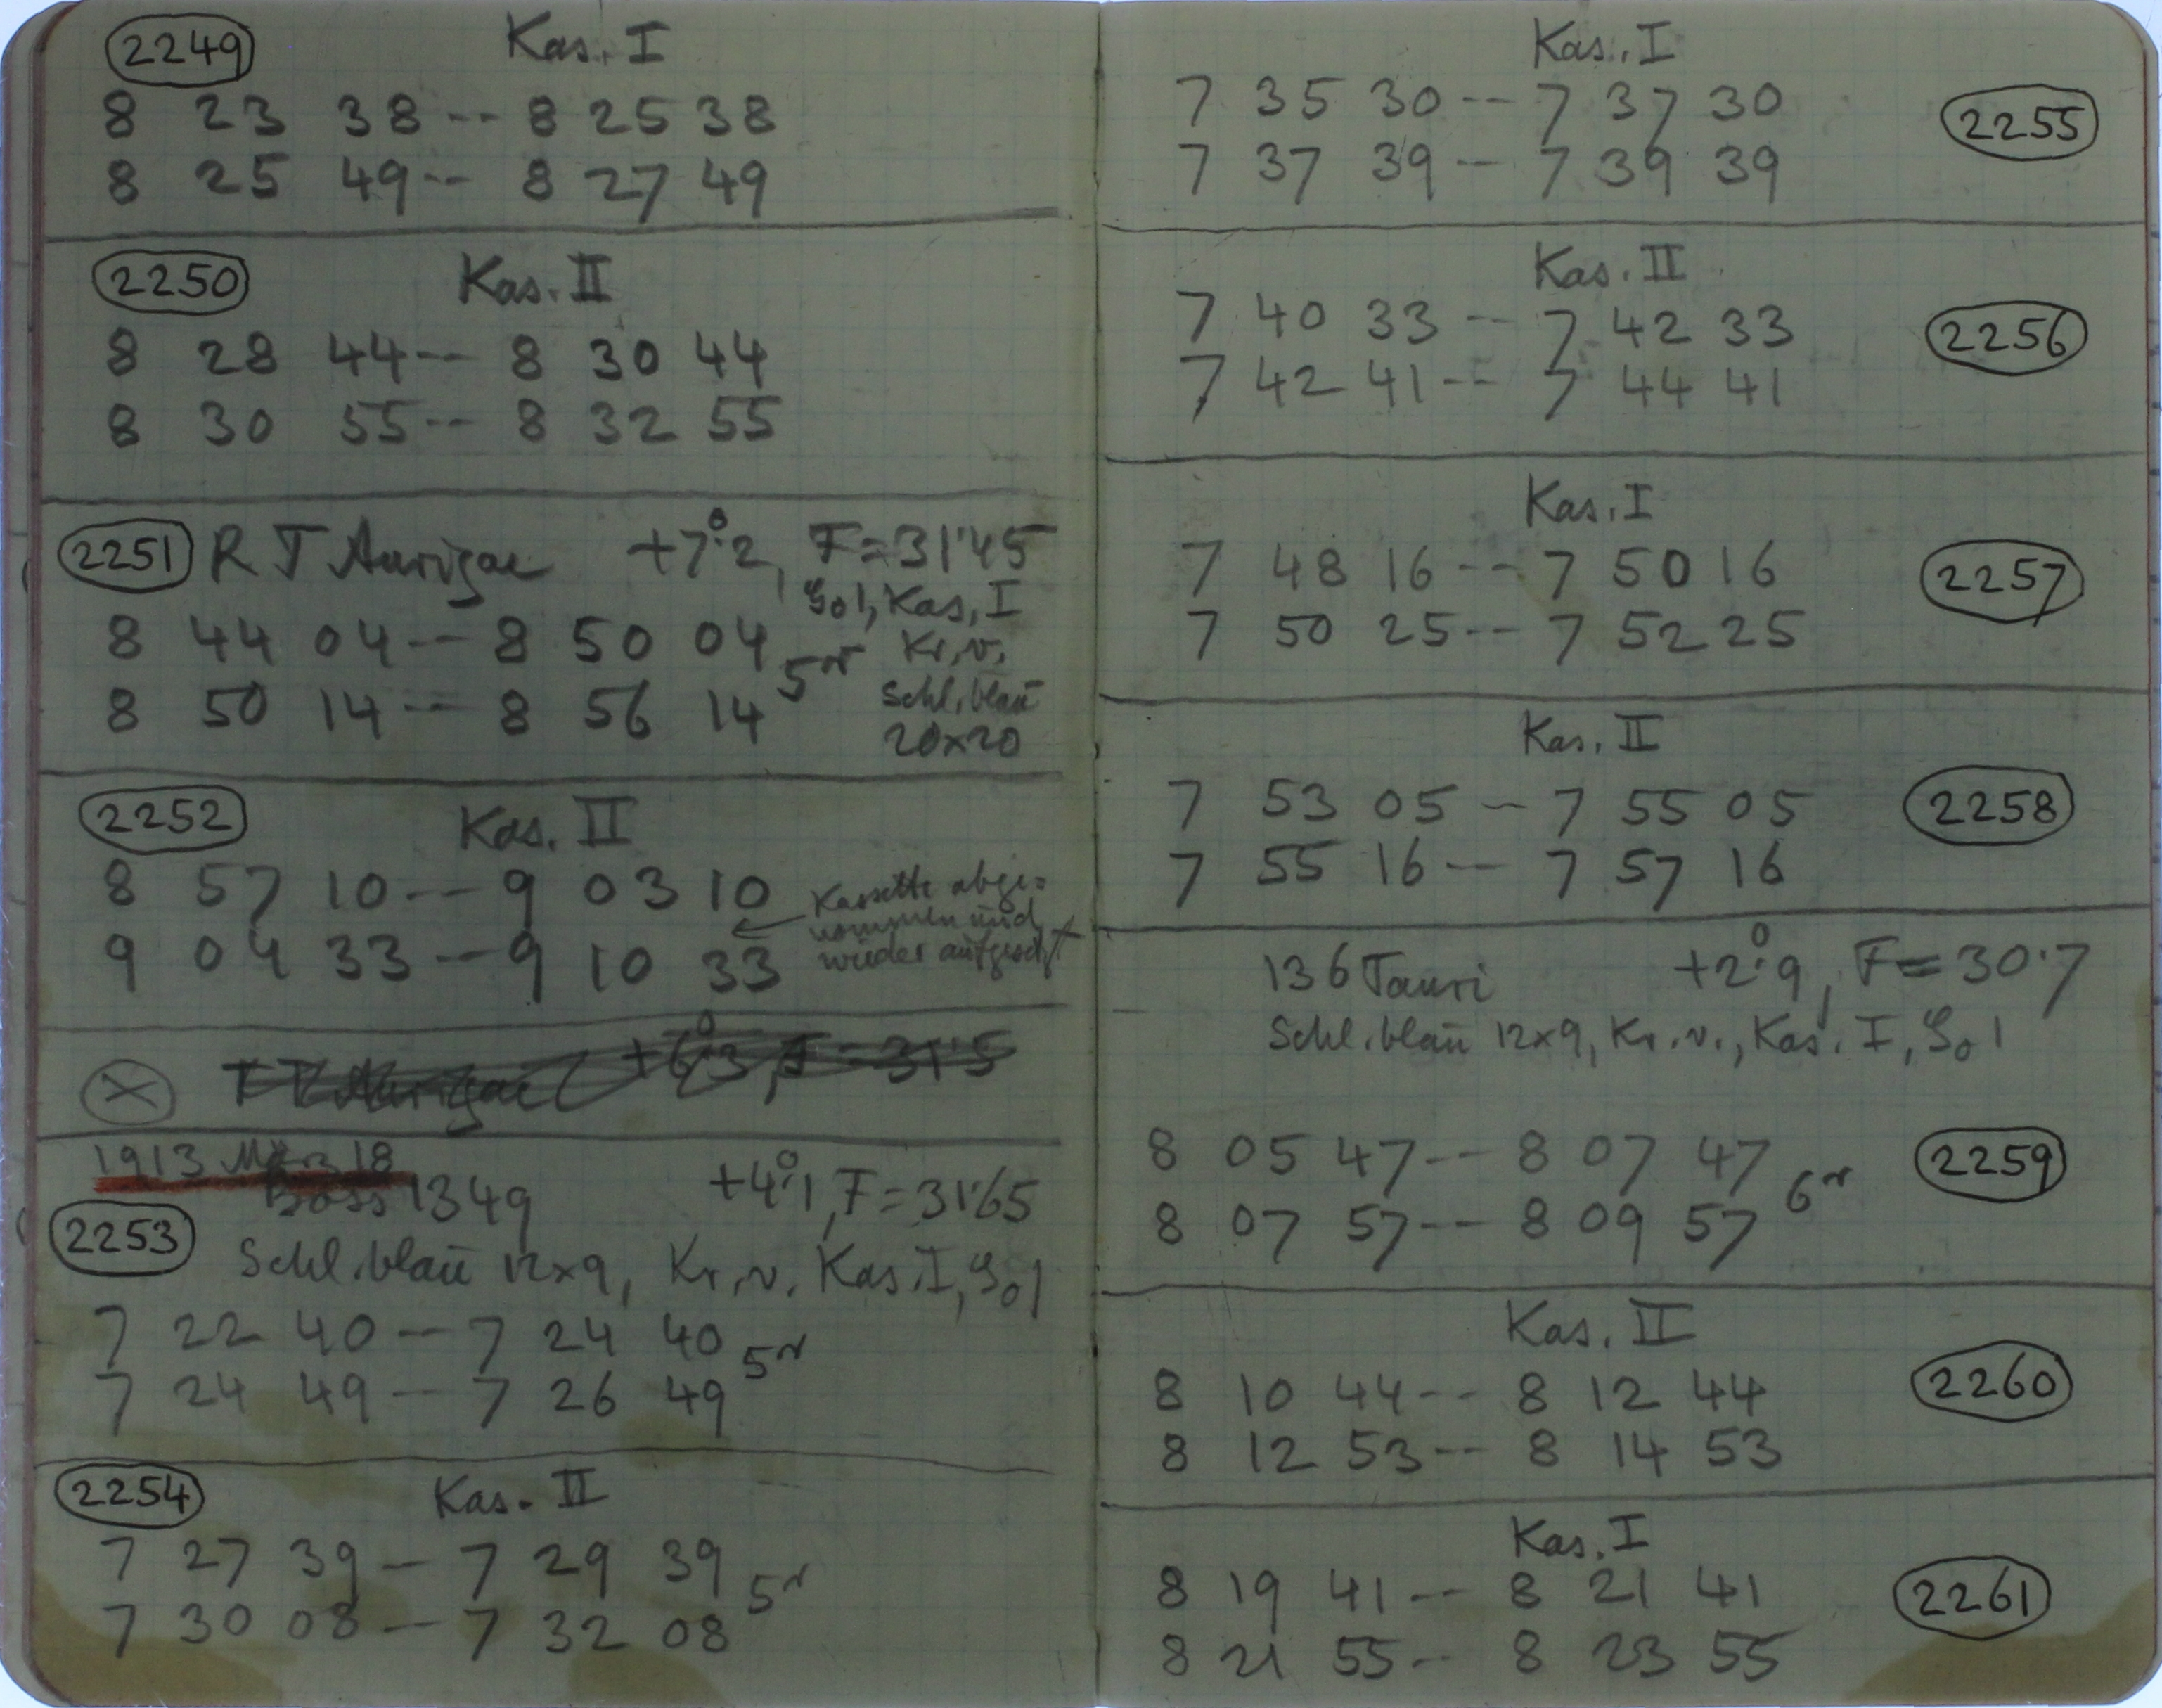 2249 Kas. I
8 23 38 -- 8 25 38
8 25 49 -- 8 27 49
2250 Kas. II
8 28 44 -- 8 30 44
8 30 55 -- 8 32 55
2251 RT Aurigae +7°.2, F=31.45
8 44 04 -- 8 50 04 Kas. I
5m Kr. v.
8 50 14 -- 8 56 14 Schl. blau
20×20
2252 Kas. II
8 57 10 -- 9 03 10 Kassette abge=
nommen und
9 04 33 -- 9 10 33 wieder aufgesetzt
+6°.3, F=31.5
1913 März 18
2253 Boss 1349 +4°.1, F=31.65
Schl. blau 12×9, Kr. v. Kas. I,
7 22 40 -- 7 24 40 5m
7 24 49 -- 7 26 49
2254 Kas. II
7 27 39 -- 7 29 39 5m
7 30 08 -- 7 32 08
Kas. I
7 35 30 -- 7 37 30 2255
7 37 39 -- 7 39 39
Kas. II
7 40 33 -- 7 42 33 2256
7 42 41 -- 7 44 41
Kas. I
7 48 16 -- 7 50 16 2257
7 50 25 -- 7 52 25
Kas. II
7 53 05 -- 7 55 05 2258
7 55 16 -- 7 57 16
136 Tauri +2°.9, F=30.7
Schl. blau 12×9, Kr. v., Kas. I,
8 05 47 -- 8 07 47 6m 2259
8 07 57 -- 8 09 57
Kas. II
8 10 44 -- 8 12 44 2260
8 12 53 -- 8 14 53
Kas. I
8 19 41 -- 8 21 41 2261
8 21 55 -- 8 23 55